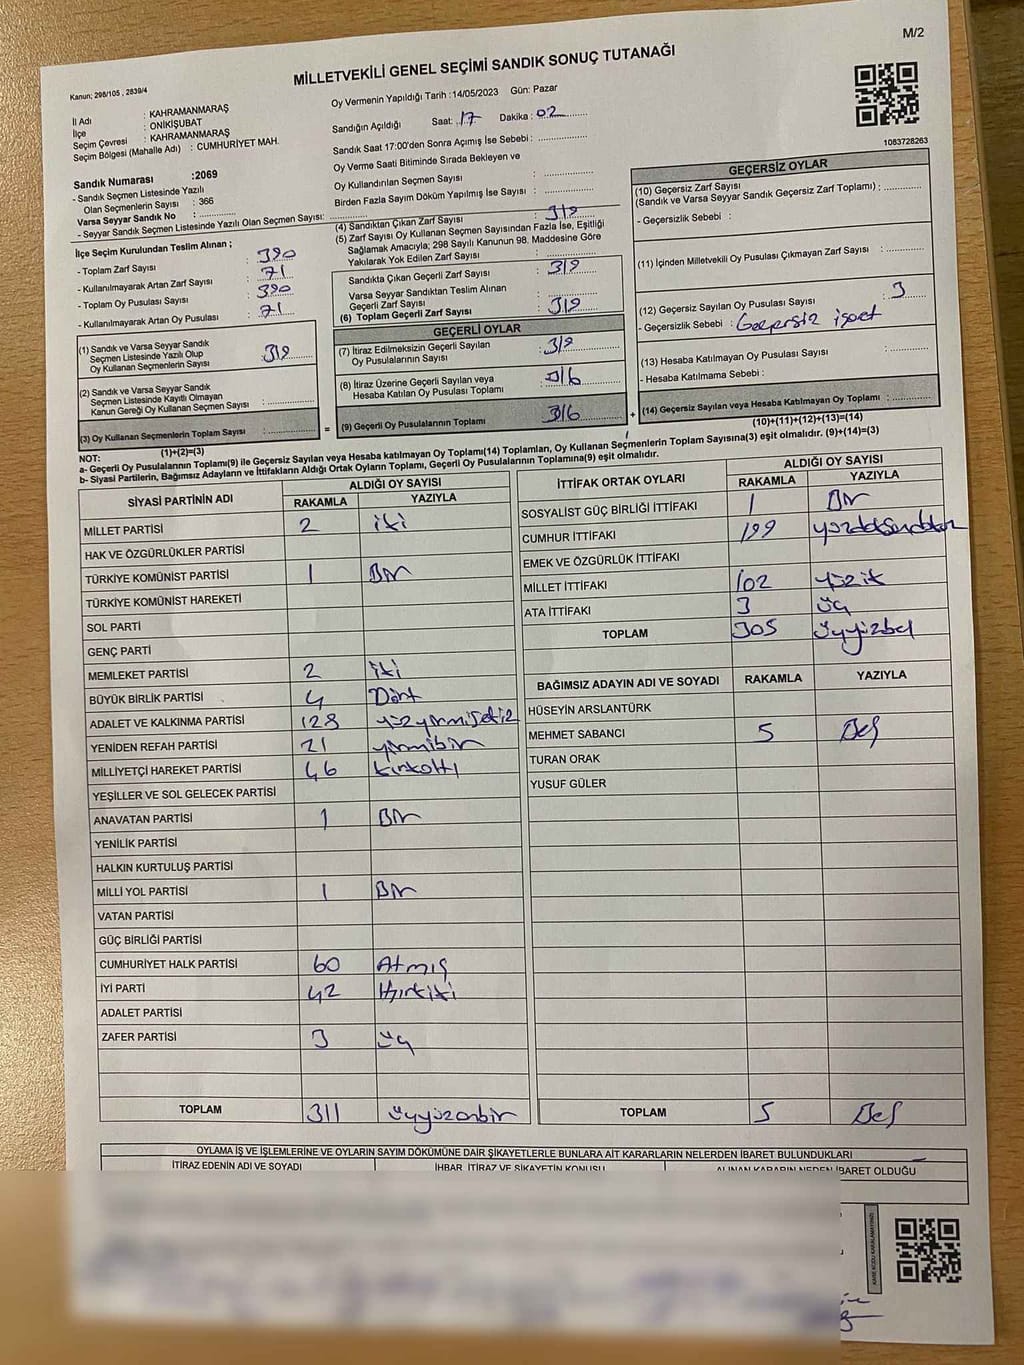 M/2
MİLLETVEKİLİ GENEL SEÇİMİ SANDIK SONUÇ TUTANAĞI
Kanun; 298/105 , 2839/4
Oy Vermenin Yapıldığı Tarih :14/05/2023 Gün: Pazar
İl Adı : KAHRAMANMARAŞ
İlçe : ONİKİŞUBAT
Seçim Çevresi : KAHRAMANMARAŞ
Seçim Bölgesi (Mahalle Adı) : CUMHURİYET MAH.
Sandık Numarası :2069
- Sandık Seçmen Listesinde Yazılı
Olan Seçmenlerin Sayısı : 366
Varsa Seyyar Sandık No :
- Seyyar Sandık Seçmen Listesinde Yazılı Olan Seçmen Sayısı:
Sandığın Açıldığı Saat: 17 Dakika : 02
Sandık Saat 17:00'den Sonra Açımış İse Sebebi :
Oy Verme Saati Bitiminde Sırada Bekleyen ve
Oy Kullandırılan Seçmen Sayısı :
Birden Fazla Sayım Döküm Yapılmış İse Sayısı :
1083728263
İlçe Seçim Kurulundan Teslim Alınan ;
- Toplam Zarf Sayısı : 390
- Kullanılmayarak Artan Zarf Sayısı : 71
- Toplam Oy Pusulası Sayısı : 390
- Kullanılmayarak Artan Oy Pusulası : 71
(1) Sandık ve Varsa Seyyar Sandık
Seçmen Listesinde Yazılı Olup
Oy Kullanan Seçmenlerin Sayısı : 319
(2) Sandık ve Varsa Seyyar Sandık
Seçmen Listesinde Kayıtlı Olmayan
Kanun Gereği Oy Kullanan Seçmen Sayısı :
(3) Oy Kullanan Seçmenlerin Toplam Sayısı :
(1)+(2)=(3)
(4) Sandıktan Çıkan Zarf Sayısı : 319
(5) Zarf Sayısı Oy Kullanan Seçmen Sayısından Fazla İse, Eşitliği
Sağlamak Amacıyla; 298 Sayılı Kanunun 98. Maddesine Göre
Yakılarak Yok Edilen Zarf Sayısı :
Sandıkta Çıkan Geçerli Zarf Sayısı : 319
Varsa Seyyar Sandıktan Teslim Alınan
Geçerli Zarf Sayısı :
(6) Toplam Geçerli Zarf Sayısı : 319
GEÇERLİ OYLAR
(7) İtiraz Edilmeksizin Geçerli Sayılan
Oy Pusulalarının Sayısı : 319
(8) İtiraz Üzerine Geçerli Sayılan veya
Hesaba Katılan Oy Pusulası Toplamı : 316
= (9) Geçerli Oy Pusulalarının Toplamı : 316 +
GEÇERSİZ OYLAR
(10) Geçersiz Zarf Sayısı
(Sandık ve Varsa Seyyar Sandık Geçersiz Zarf Toplamı) :
- Geçersizlik Sebebi :
(11) İçinden Milletvekili Oy Pusulası Çıkmayan Zarf Sayısı :
(12) Geçersiz Sayılan Oy Pusulası Sayısı : 3
- Geçersizlik Sebebi : Geçersiz işaret
(13) Hesaba Katılmayan Oy Pusulası Sayısı :
- Hesaba Katılmama Sebebi :
(14) Geçersiz Sayılan veya Hesaba Katılmayan Oy Toplamı :
(10)+(11)+(12)+(13)=(14)
NOT:
a- Geçerli Oy Pusulalarının Toplamı(9) ile Geçersiz Sayılan veya Hesaba katılmayan Oy Toplamı(14) Toplamları, Oy Kullanan Seçmenlerin Toplam Sayısına(3) eşit olmalıdır. (9)+(14)=(3)
b- Siyasi Partilerin, Bağımsız Adayların ve İttifakların Aldığı Ortak Oyların Toplamı, Geçerli Oy Pusulalarının Toplamına(9) eşit olmalıdır.
SİYASİ PARTİNİN ADI ALDIĞI OY SAYISI
RAKAMLA YAZIYLA
MİLLET PARTİSİ 2 iki
HAK VE ÖZGÜRLÜKLER PARTİSİ
TÜRKİYE KOMÜNİST PARTİSİ 1 Bir
TÜRKİYE KOMÜNİST HAREKETİ
SOL PARTİ
GENÇ PARTİ
MEMLEKET PARTİSİ 2 iki
BÜYÜK BİRLİK PARTİSİ 4 Dört
ADALET VE KALKINMA PARTİSİ 128 yüzyirmisekiz
YENİDEN REFAH PARTİSİ 21 yirmibir
MİLLİYETÇİ HAREKET PARTİSİ 46 kırkaltı
YEŞİLLER VE SOL GELECEK PARTİSİ
ANAVATAN PARTİSİ 1 Bir
YENİLİK PARTİSİ
HALKIN KURTULUŞ PARTİSİ
MİLLİ YOL PARTİSİ 1 Bir
VATAN PARTİSİ
GÜÇ BİRLİĞİ PARTİSİ
CUMHURİYET HALK PARTİSİ 60 Atmış
İYİ PARTİ 42 Kırkiki
ADALET PARTİSİ
ZAFER PARTİSİ 3 üç
TOPLAM 311 üçyüzonbir
İTTİFAK ORTAK OYLARI ALDIĞI OY SAYISI
RAKAMLA YAZIYLA
SOSYALİST GÜÇ BİRLİĞİ İTTİFAKI 1 Bir
CUMHUR İTTİFAKI 199 yüzdoksandokuz
EMEK VE ÖZGÜRLÜK İTTİFAKI
MİLLET İTTİFAKI 102 yüziki
ATA İTTİFAKI 3 üç
TOPLAM 305 üçyüzbeş
BAĞIMSIZ ADAYIN ADI VE SOYADI RAKAMLA YAZIYLA
HÜSEYİN ARSLANTÜRK
MEHMET SABANCI 5 Beş
TURAN ORAK
YUSUF GÜLER
TOPLAM 5 Beş
OYLAMA İŞ VE İŞLEMLERİNE VE OYLARIN SAYIM DÖKÜMÜNE DAİR ŞİKAYETLERLE BUNLARA AİT KARARLARIN NELERDEN İBARET BULUNDUKLARI
İTİRAZ EDENİN ADI VE SOYADI İHBAR, İTİRAZ VE ŞİKAYETİN KONUSU ALINAN KARARIN NEDEN İBARET OLDUĞU
KARE KODU KARALAMAYINIZ!